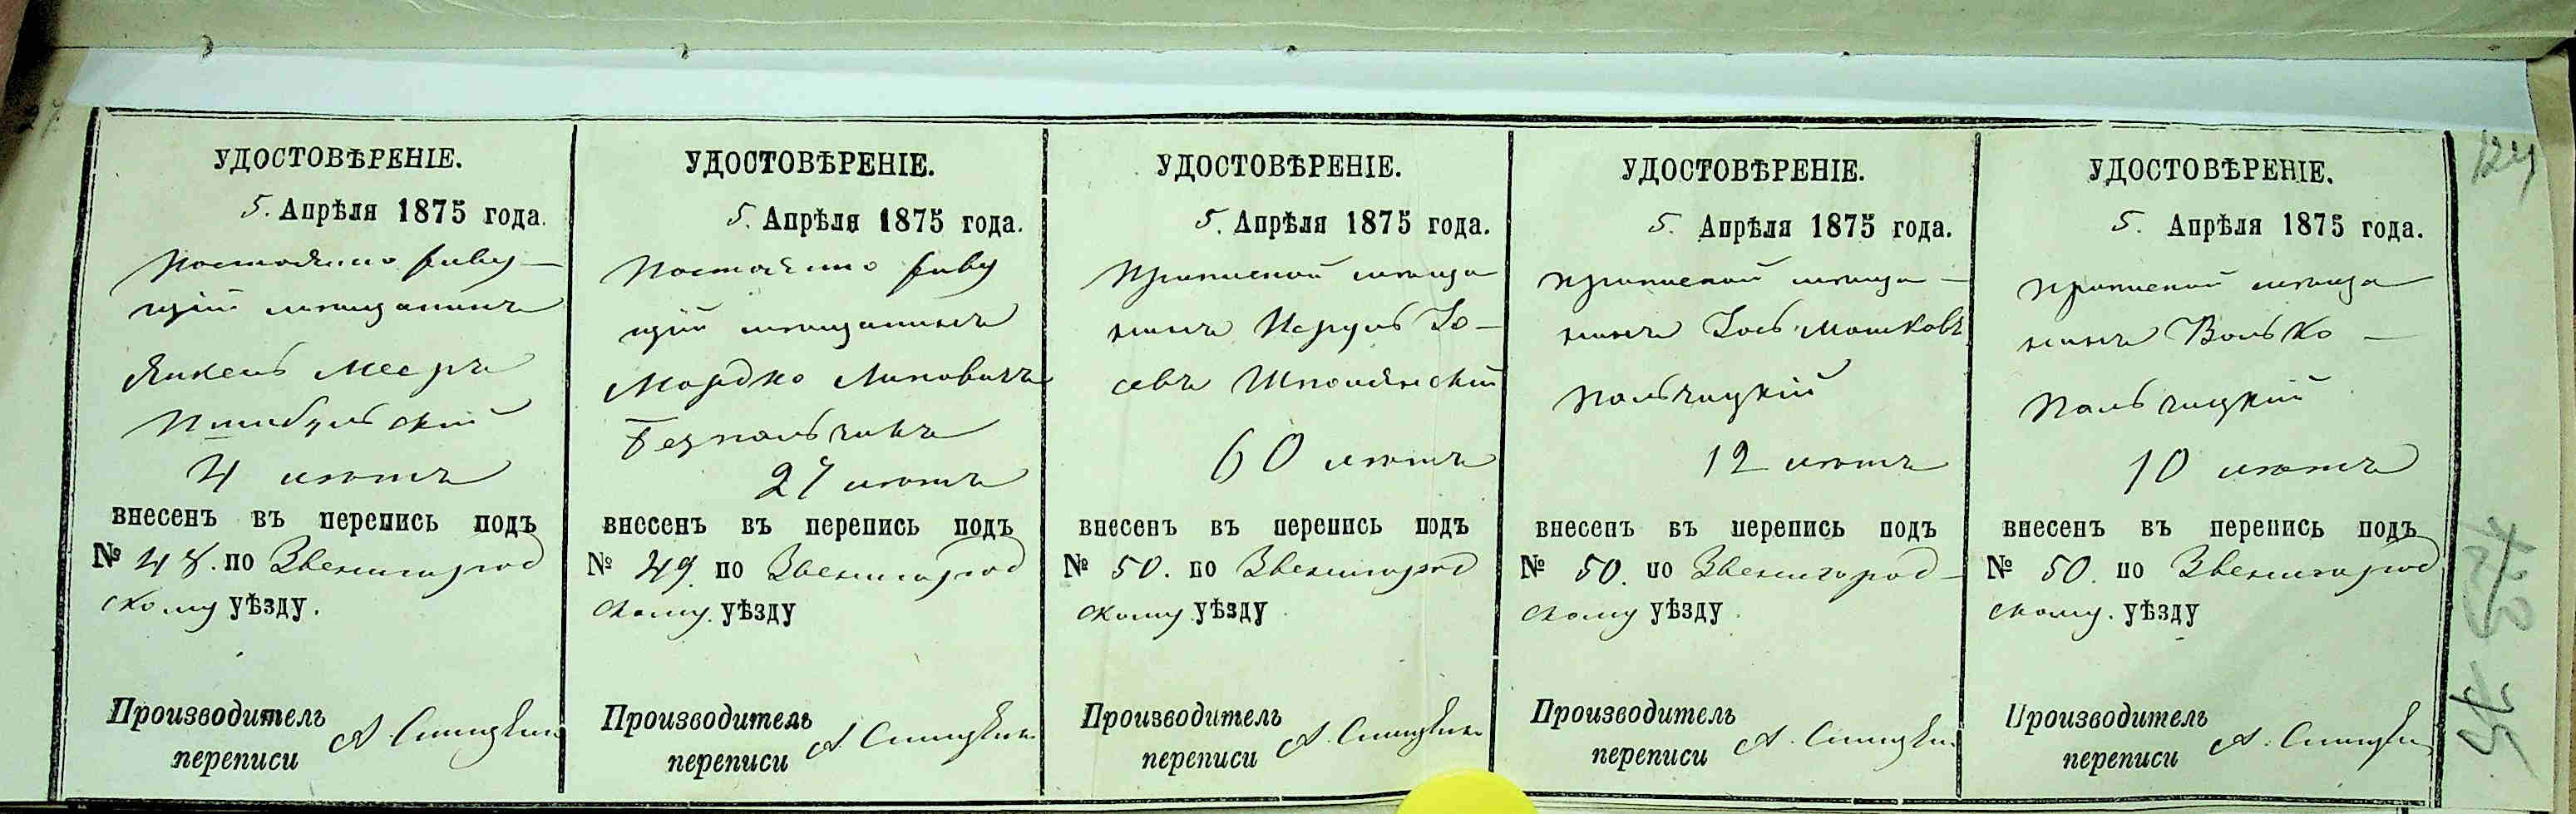 УДОСТОВѢРЕНІЕ.
5. Апрѣля 1875 года.
Постоянно живу-
щій мѣщанинъ
Янкель Мееръ
4 лѣтъ
внесенъ въ перепись подъ
№ 48. по Звенигород
скому уѣзду.
Производитель
переписи
УДОСТОВѢРЕНІЕ.
5. Апрѣля 1875 года.
Постоянно живу
щій мѣщанинъ
Мордко Липовичъ
Безпальчикъ
27 лѣтъ
внесенъ въ перепись подъ
№ 49 по Звенигород
скому. уѣзду
Производитель
переписи
УДОСТОВѢРЕНІЕ.
5. Апрѣля 1875 года.
Приписной мѣща
нинъ Исруль Іо-
севъ Шполянскій
60 лѣтъ
внесенъ въ перепись подъ
№ 50. по Звенигород
скому уѣзду
Производитель
переписи
УДОСТОВѢРЕНІЕ.
5. Апрѣля 1875 года.
Приписной мѣща-
нинъ Іось Мошковъ
Пальчицкій
12 лѣтъ
внесенъ въ перепись подъ
№ 50. по Звенигород-
скому уѣзду.
Производитель
переписи
УДОСТОВѢРЕНІЕ.
5. Апрѣля 1875 года.
Приписной мѣща
нинъ Волько-
Пальчицкій
10 лѣтъ
внесенъ въ перепись подъ
№ 50. по Звенигород
скому. уѣзду
Производитель
переписи
124